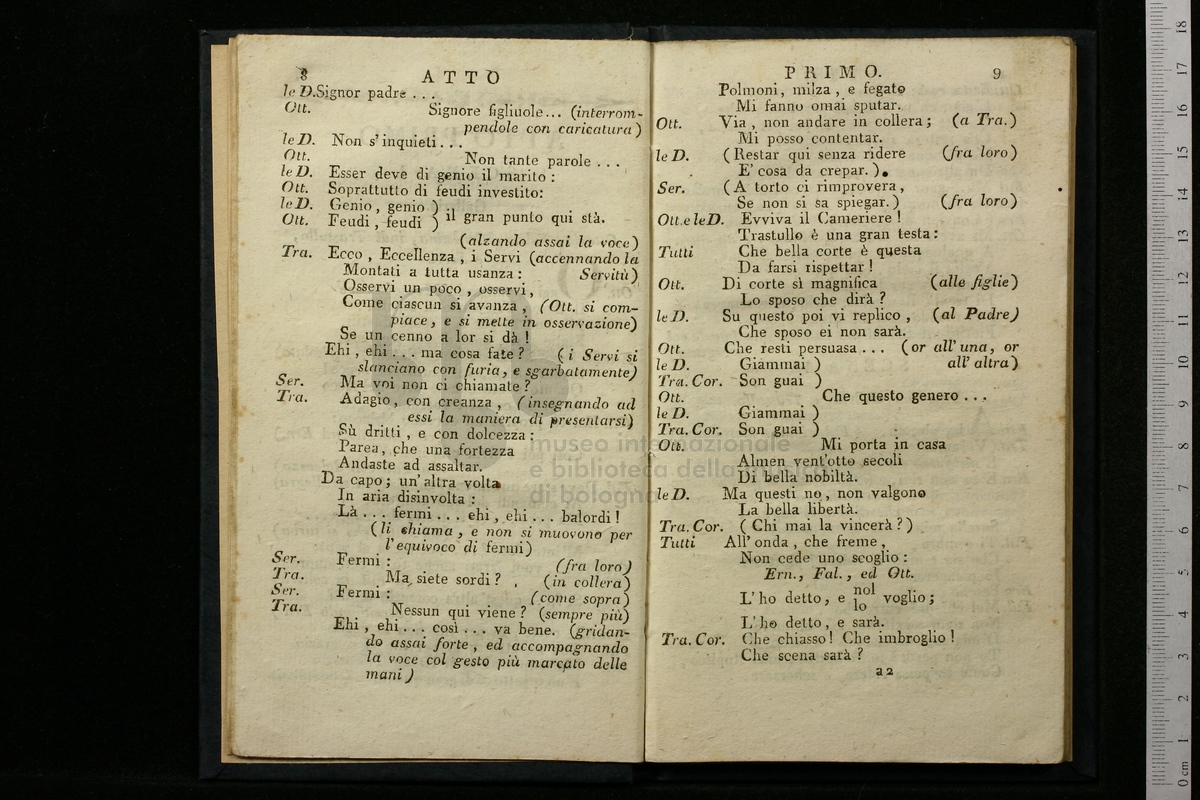 8 ATTO
le D. Signor padre . . .
Ott. Signore figliuole... (interrom-
pendole con caricatura)
le D. Non s'inquieti. . .
Ott. Non tante parole . . .
le D. Esser deve di genio il marito :
Ott. Soprattutto di feudi investito:
le D. Genio, genio )
Ott. Feudi, feudi ) il gran punto quì stà.
(alzando assai la voce)
Tra. Ecco, Eccellenza, i Servi (accennando la
Montati a tutta usanza : Servitù)
Osservi un poco, osservi,
Come ciascun si avanza, (Ott. si com-
piace, e si mette in osservazione)
Se un cenno a lor si dà !
Ehi, ehi . . . ma cosa fate ? (i Servi si
slanciano con furia, e sgarbatamente)
Ser. Ma voi non ci chiamate ?
Tra. Adagio, con creanza, (insegnando ad
essi la maniera di presentarsi)
Sù dritti, e con dolcezza :
Parea, che una fortezza
Andaste ad assaltar.
Da capo; un'altra volta
In aria disinvolta :
Là . . . fermi . . . ehi, ehi . . . balordi !
(li chiama, e non si muovono per
l'equivoco di fermi)
Ser. Fermi : (fra loro)
Tra. Ma siete sordi ? (in collera)
Ser. Fermi : (come sopra)
Tra. Nessun qui viene ? (sempre più)
Ehi, ehi... così ... va bene. (gridan-
do assai forte, ed accompagnando
la voce col gesto più marcato delle
mani)
PRIMO. 9
Polmoni, milza, e fegato
Mi fanno omai sputar.
Ott. Via, non andare in collera; (a Tra.)
Mi posso contentar.
le D. (Restar qui senza ridere (fra loro)
E' cosa da crepar.)
Ser. (A torto ci rimprovera,
Se non si sa spiegar.) (fra loro)
Ott. e le D. Evviva il Cameriere !
Trastullo è una gran testa :
Tutti Che bella corte è questa
Da farsi rispettar !
Ott. Di corte sì magnifica (alle figlie)
Lo sposo che dirà ?
le D. Su questo poi vi replico, (al Padre)
Che sposo ei non sarà.
Ott. Che resti persuasa ... (or all'una, or
le D. Giammai ) all'altra)
Tra. Cor. Son guai )
Ott. Che questo genero . . .
le D. Giammai )
Tra. Cor. Son guai )
Ott. Mi porta in casa
Almen vent'otto secoli
Di bella nobiltà.
le D. Ma questi no, non valgono
La bella libertà.
Tra. Cor. (Chi mai la vincerà ?)
Tutti All'onda, che freme,
Non cede uno scoglio :
Ern., Fal., ed Ott.
L'ho detto, e nol voglio;
lo
L'ho detto, e sarà.
Tra. Cor. Che chiasso! Che imbroglio !
Che scena sarà ?
a2
museo internazionale
e biblioteca della musica
di bologna
0 cm 1 2 3 4 5 6 7 8 9 10 11 12 13 14 15 16 17 18